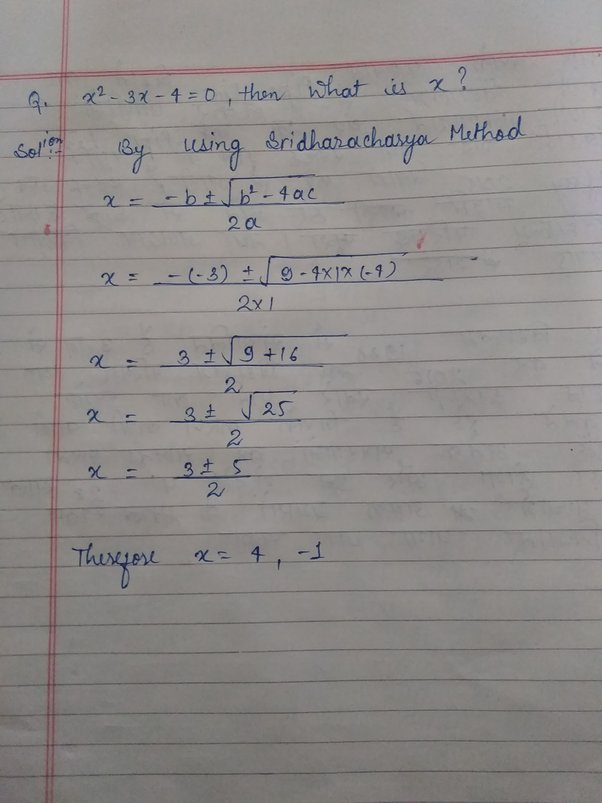 Q. x² - 3x - 4 = 0, then what is x?
Solution:- By using Sridharacharya Method
x = (-b ± √(b² - 4ac)) / 2a
x = (-(-3) ± √(9 - 4×1×(-4))) / 2×1
x = (3 ± √(9 + 16)) / 2
x = (3 ± √25) / 2
x = (3 ± 5) / 2
Therefore x = 4, -1